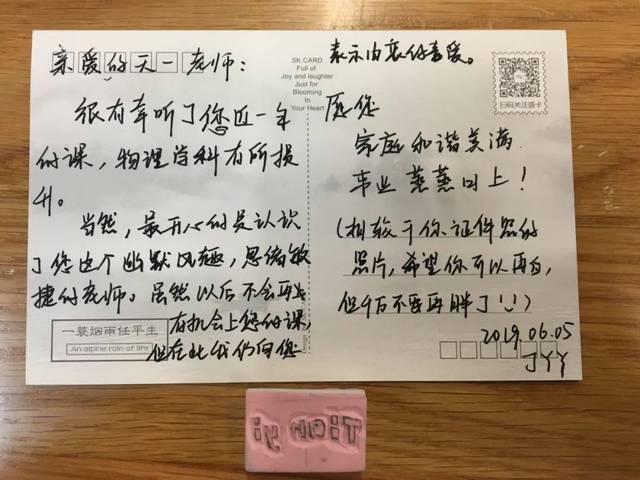 亲爱的天一老师：
很有幸听了您近一年
的课，物理学科有所损
升。
当然，最开心的是认识
了您这个幽默风趣，思绪敏
捷的老师。虽然以后不会再
有机会上您的课，
但在此我们向您
一蓑烟雨任平生
An alpine rain of life
SK.CARD
Full of
Joy and laughter
Just for
Blooming
In
Your Heart
表示由衷的喜爱。
扫码关注蔬卡
愿您
家庭和谐美满
事业蒸蒸日上！
（相较于你证件照的
照片，希望你可以再白，
但千万不要再胖了！！）
2019.06.05
JYY
Tian yi